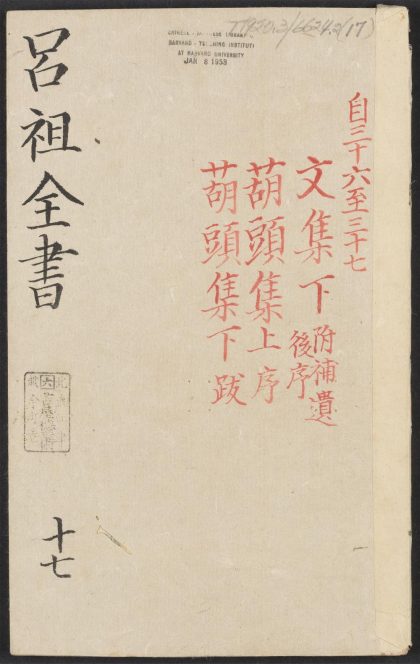 TT1920.2/6624.2(17)
CHINESE - JAPANESE LIBRARY
HARVARD - YENCHING INSTITUTE
AT HARVARD UNIVERSITY
JAN 8 1953
自三十六至三十七
文集下 附補遺
後序
葫頭集上序
葫頭集下跋
呂祖全書
十七